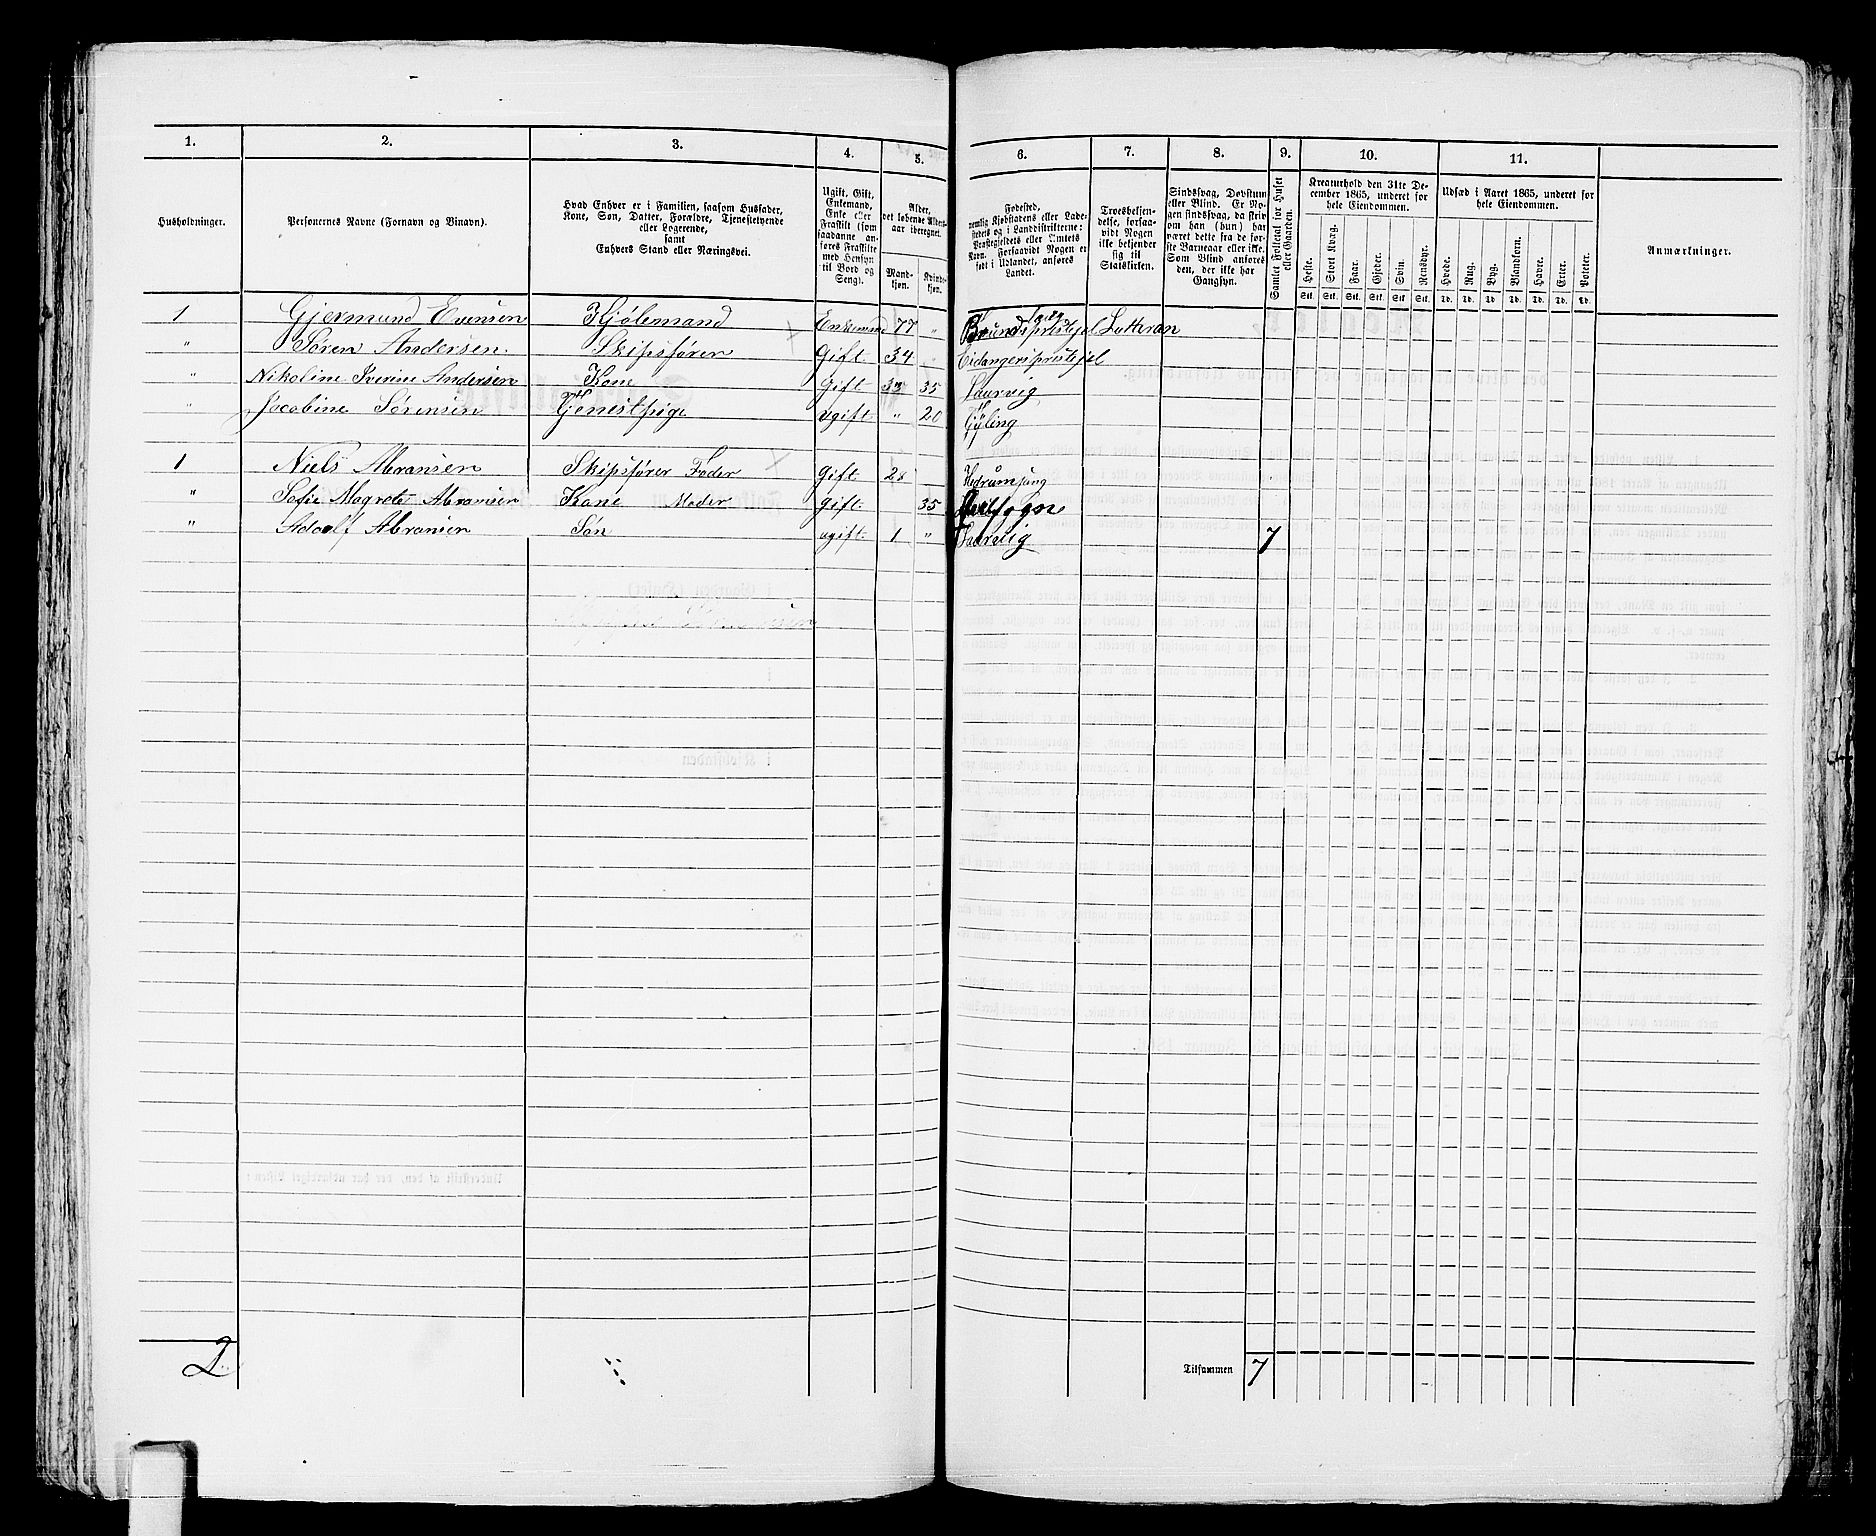 1. 2. 3. 4. 5. 6. 7. 8. 9. 10. 11.
Husholdninger.
Personernes Navne (Fornavn og Binavn).
Hvad Enhver er i Familien, saasom Husfader,
Kone, Søn, Datter, Forældre, Tjenestetyende
eller Logerende,
samt
Enhvers Stand eller Næringsvei.
Ugift, Gift,
Enkemand,
Enke eller
Fraskilt (som
saadanne an-
føres Fraskilte
med Hensyn
til Bord og
Seng).
Alder,
det løbende Alders-
aar iberegnet.
Mand-
kjøn.
Kvinde-
kjøn.
Fødested,
nemlig Kjøbstadens eller Lade-
stedets og i Landdistrikterne:
Præstegjeldets eller Amtets
Navn. Forsaavidt Nogen er
født i Udlandet, anføres
Landet.
Troesbekjen-
delse, forsaa-
vidt Nogen
ikke bekjender
sig til
Statskirken.
Sindssvag, Døvstum
eller Blind. Er No-
gen sindssvag, da skriv
om han (hun) har
været dette fra de før-
ste Barneaar eller ikke.
Som Blind anføres
den, der ikke har
Gangsyn.
Samlet Folketal for Huset
eller Gaarden.
Kreaturhold den 31te De-
cember 1865, underet for
hele Eiendommen.
Heste. Stort Kvæg. Faar. Gjeder. Svin. Rensdyr.
Stk. Stk. Stk. Stk. Stk. Stk.
Udsæd i Aaret 1865, underet for
hele Eiendommen.
Hvede. Rug. Byg. Blandkorn. Havre. Erter. Poteter.
Td. Td. Td. Td. Td. Td. Td.
Anmærkninger.
1 Gjermund Evensen Enkemand 77 " Lutteran
" Søren Andersen. Skipsfører Gift. 34 Eidangersprestejel
" Nikoline Iverine Andersen Kone Gift. 35 Laurvig
" Jacobine Sørensen Tjenestpige ugift. " 20
1 Niels Abramsen Skipsfører Fader Gift. 28
" Sofie Magrete Abramsen Kone Moder Gift. 35
" Adolf Abramsen Søn ugift. 1 " 7
2
Tilsammen 7